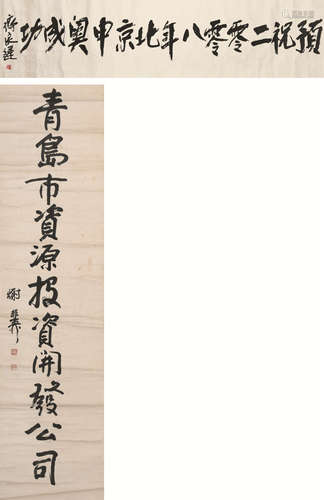 預祝二零零八年北京申奧成功
齊良遲
青島市資源投資開發公司